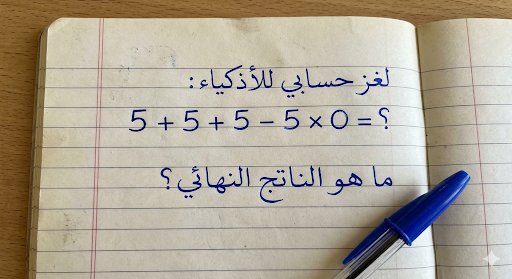 لغز حسابي للأذكياء:
5 + 5 + 5 − 5 × 0 = ؟
ما هو الناتج النهائي؟